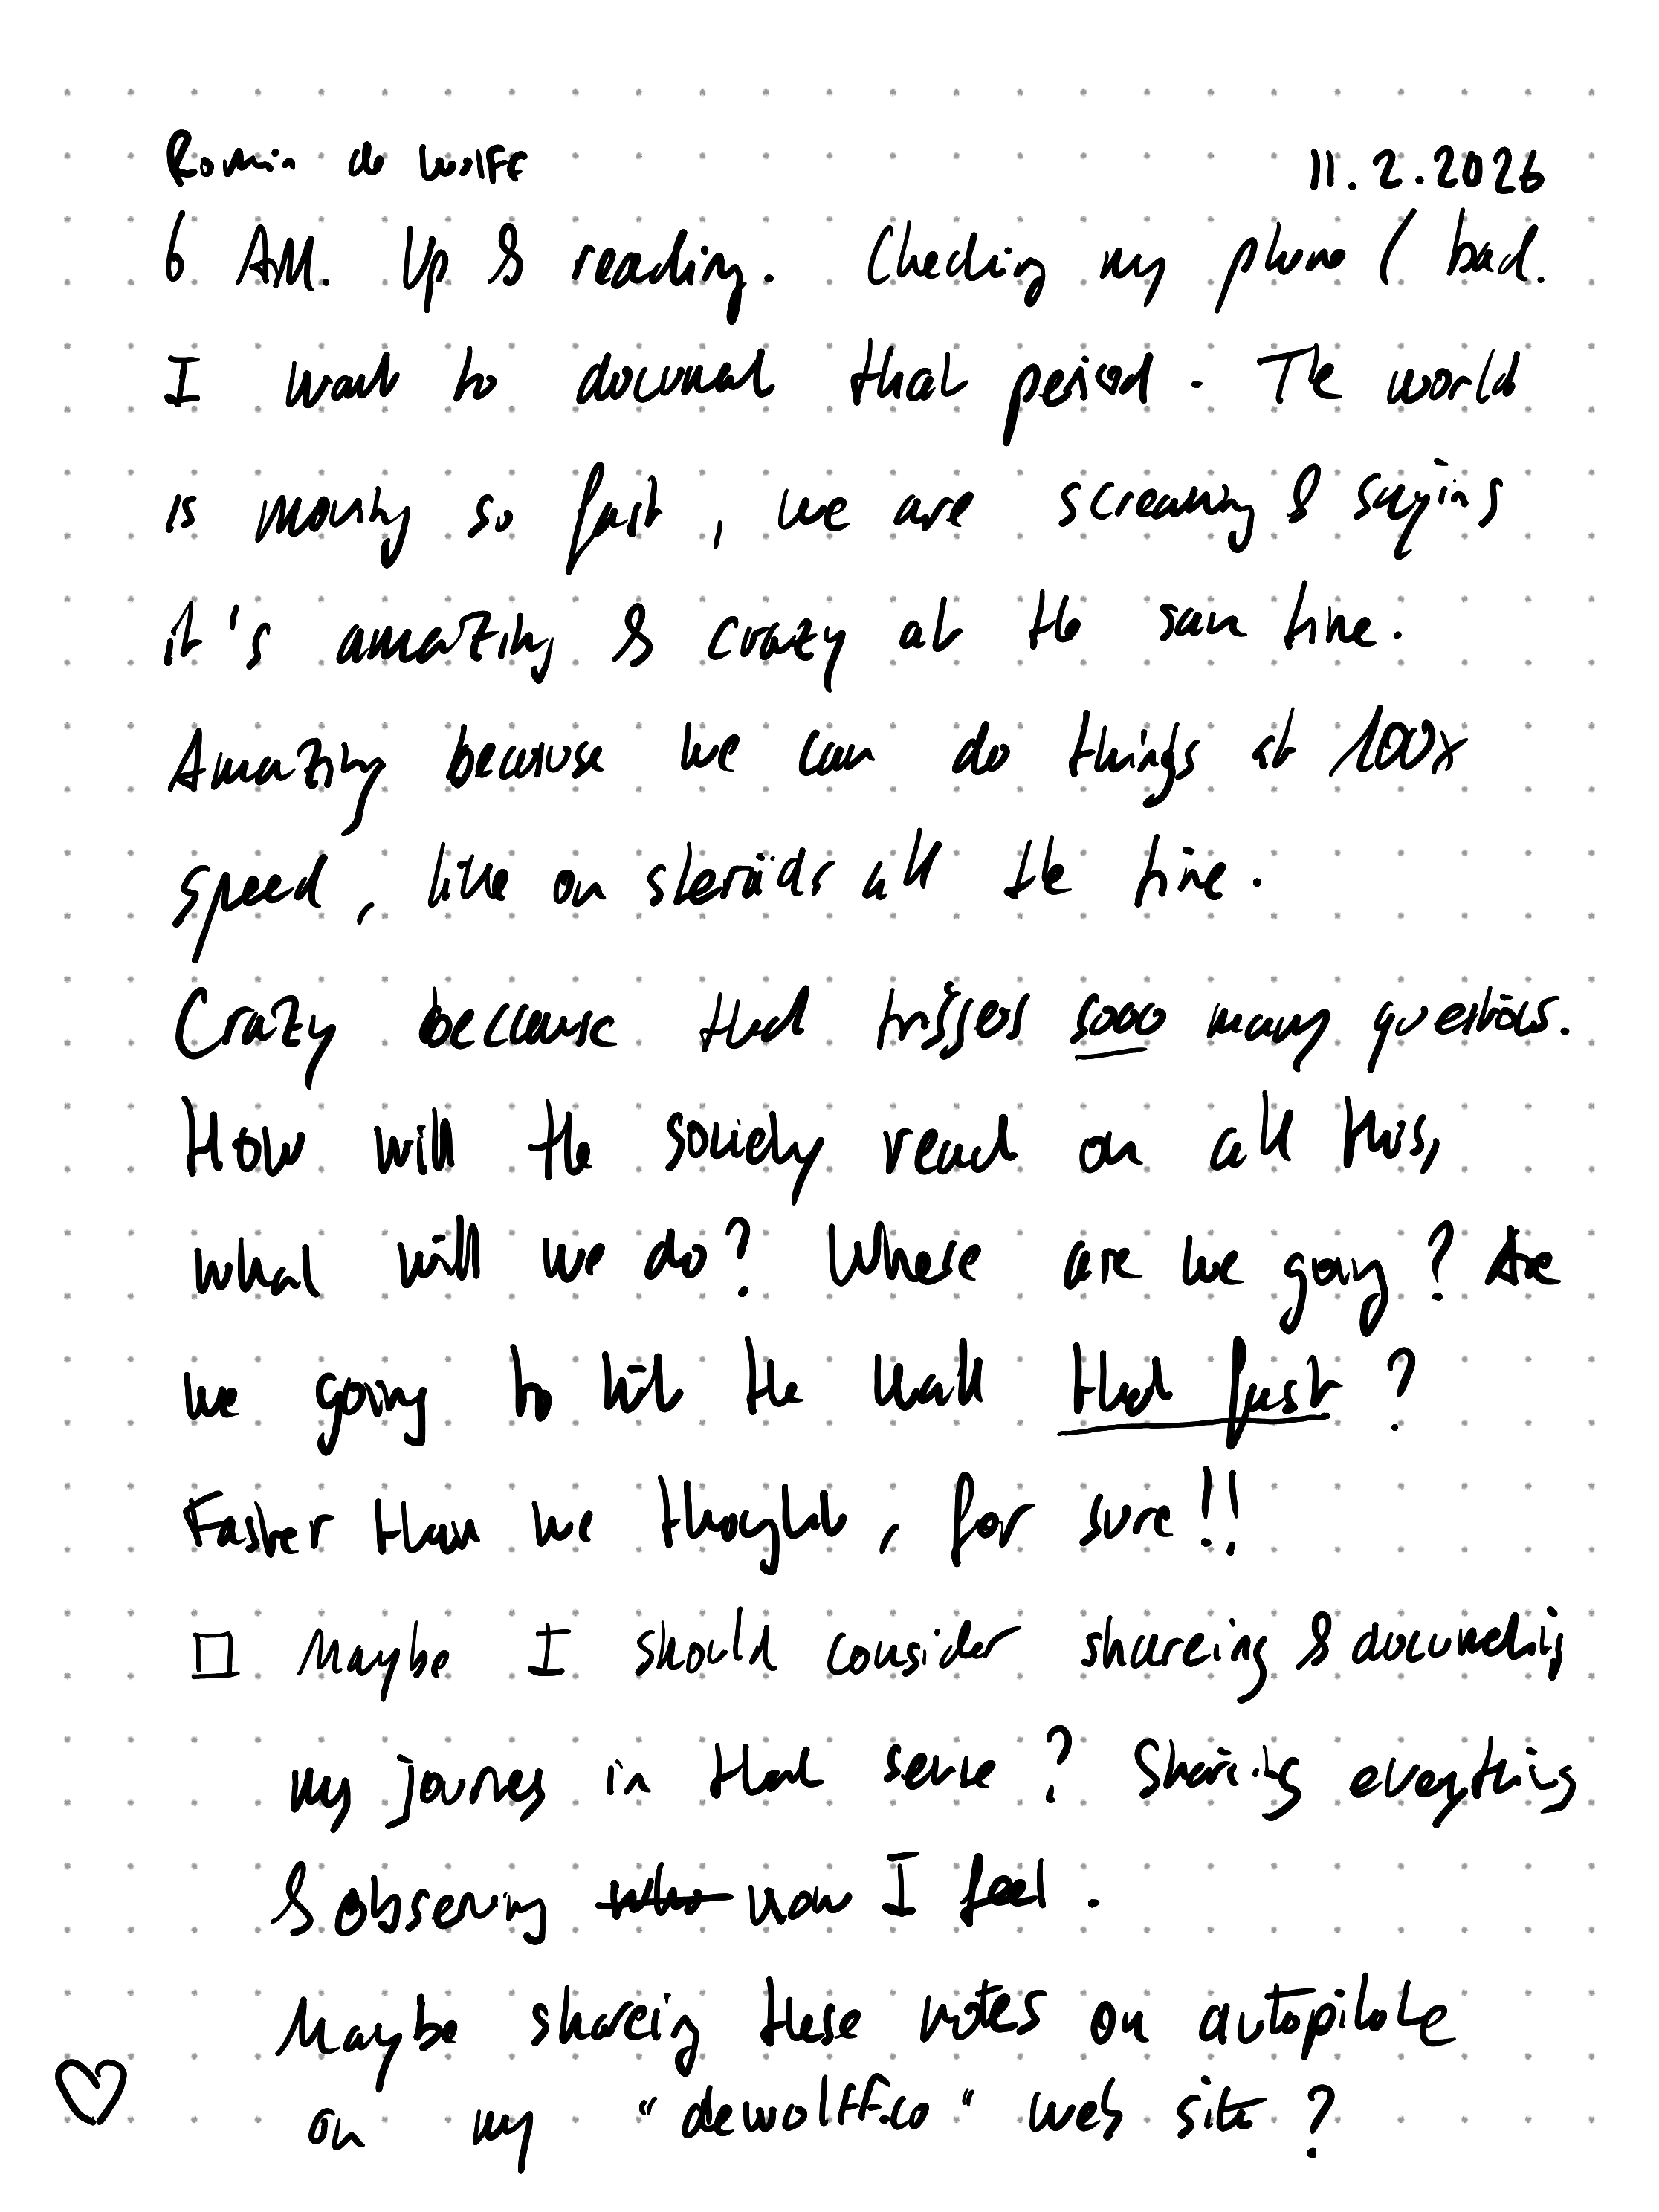 Romain de Wolff 11.2.2026
6 AM. Up & reading. Checking my phone / bad.
I want to document that period. The world
is moving so fast, we are screaming & saying
it's amazing & crazy at the same time.
Amazing because we can do things at 100x
speed, like on steroids all the time.
Crazy because that triggers sooo many questions.
How will the society react on all this,
what will we do? Where are we going? Are
we going to hit the wall that fast?
Faster than we thought, for sure!!
Maybe I should consider shareing & documenting
my journey in that sense? Sharing everything
& observing how I feel.
Maybe shareing these notes on autopilote
on my "dewolff.co" web site?